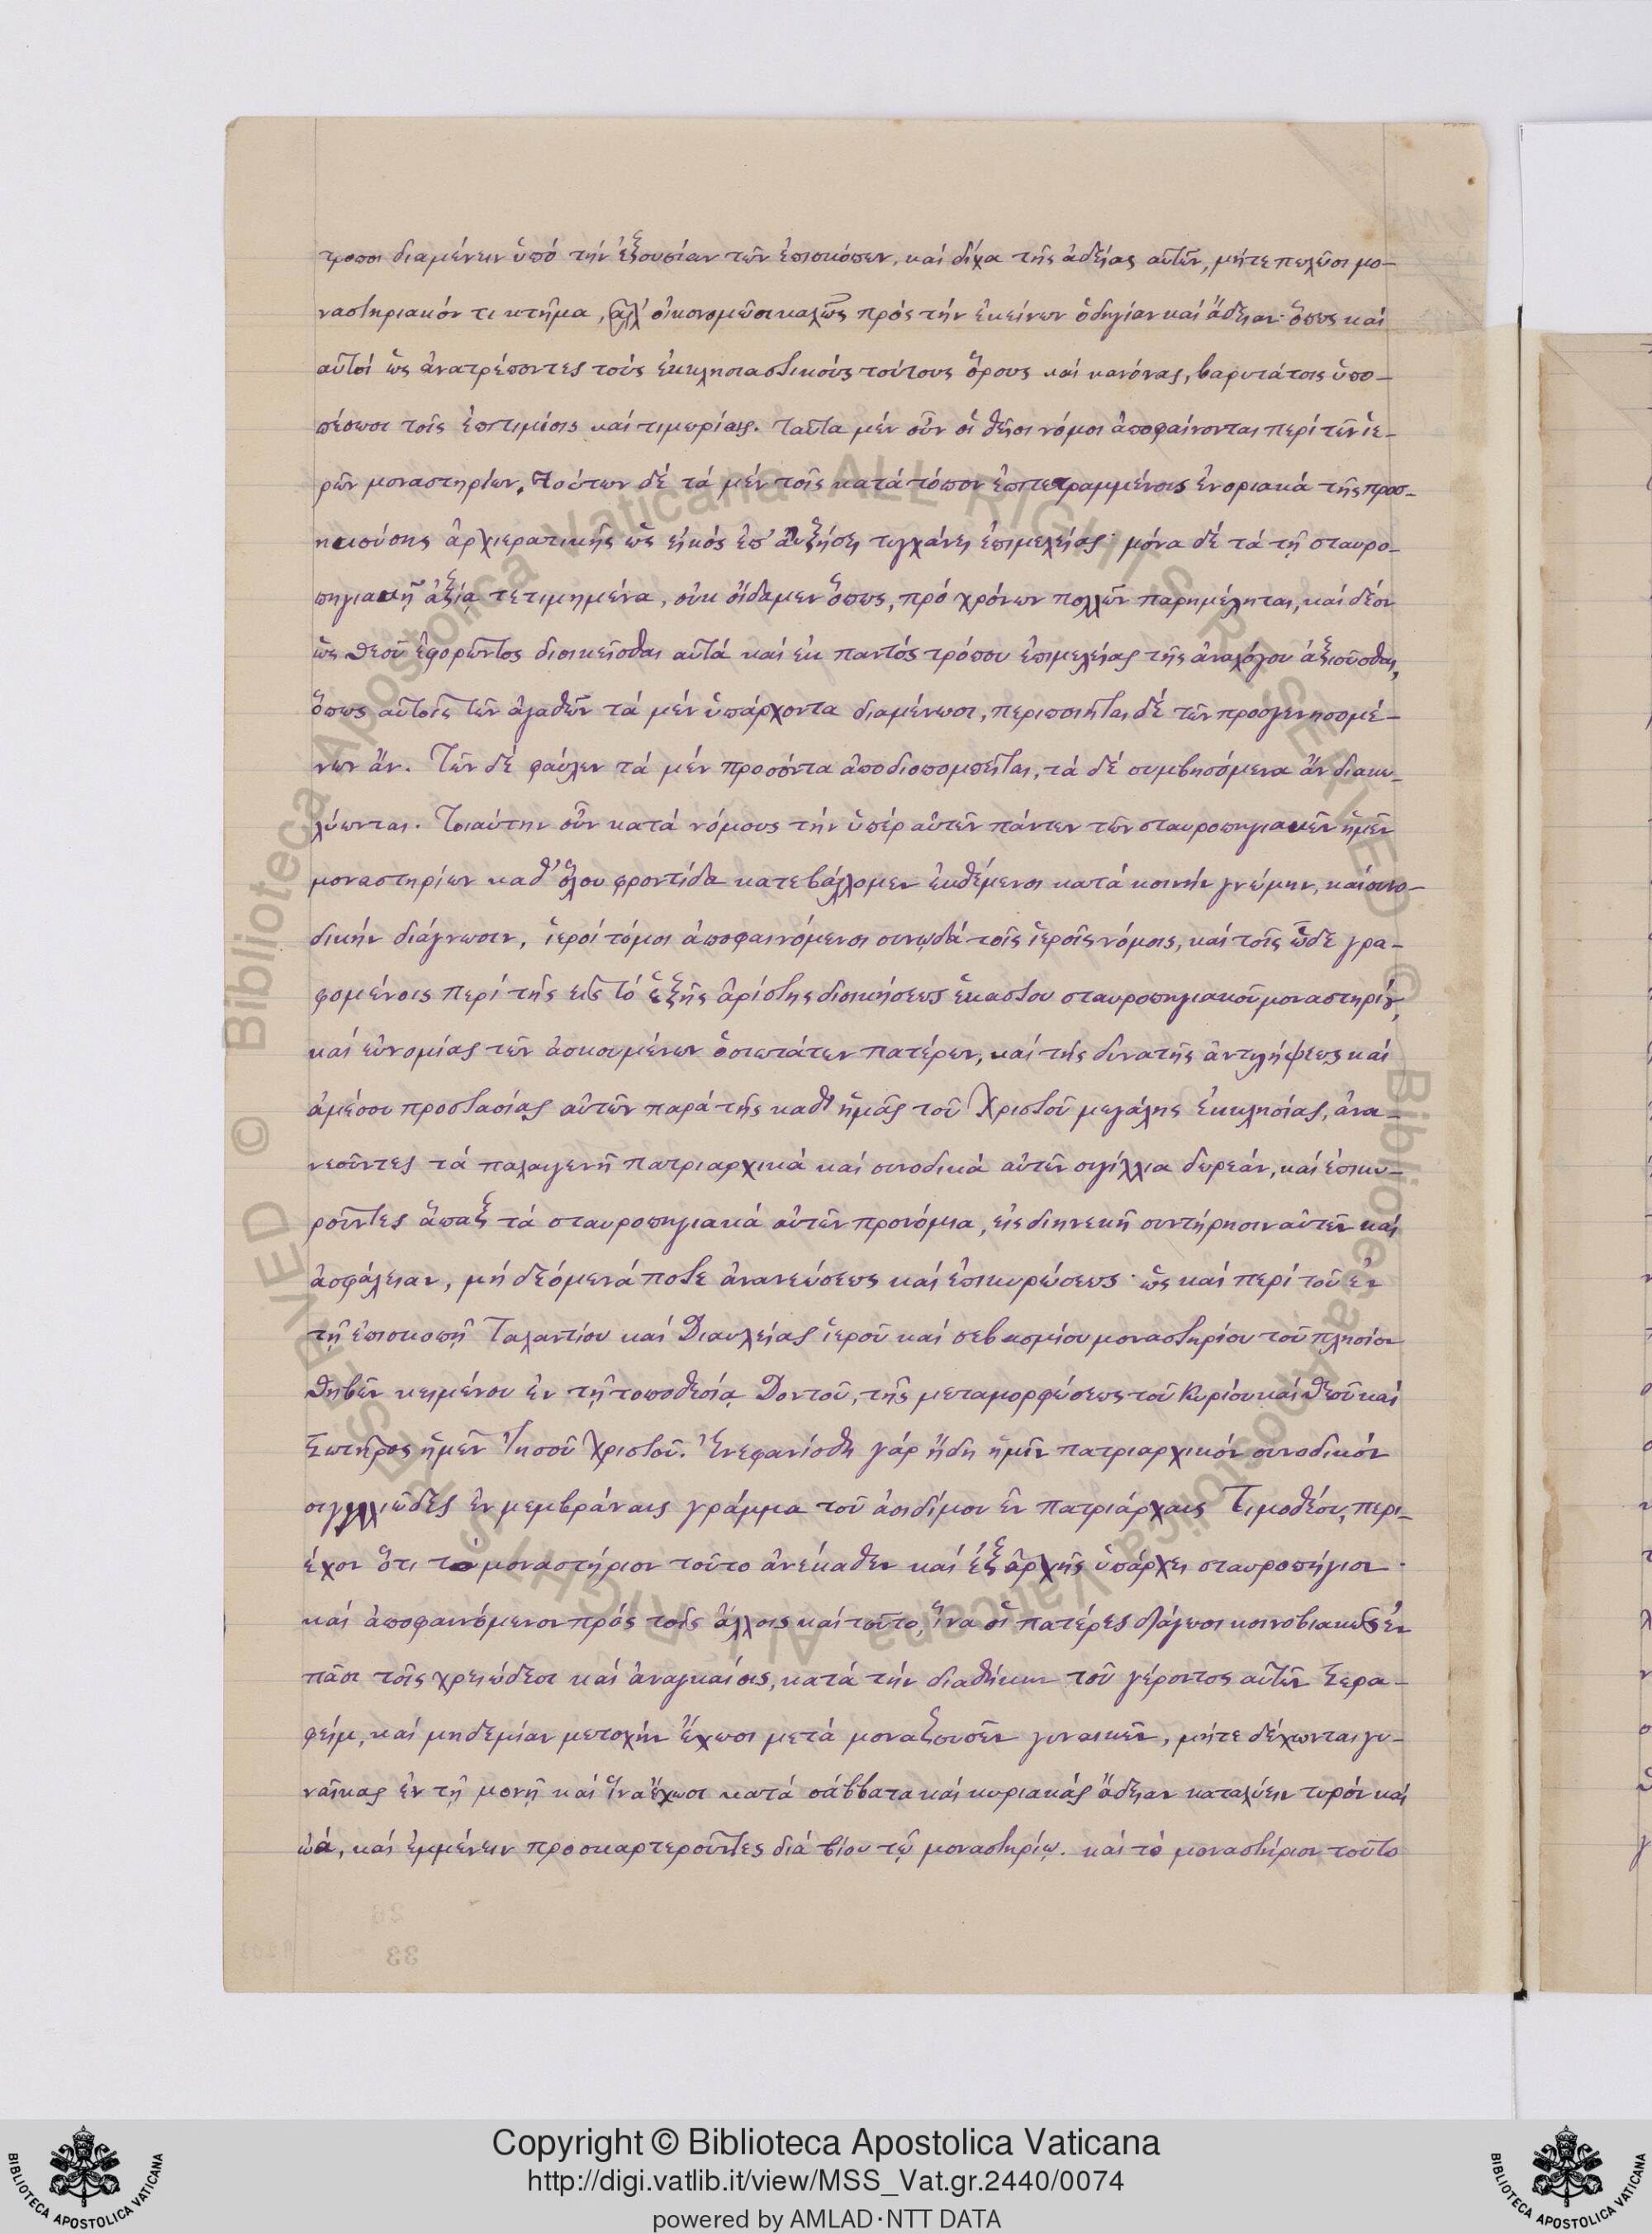 τροποι διαμένειν ὑπό τήν ἐξουσίαν τῶν ἐπισκόπων, καί δίχα τῆς ἀδείας αὐτῶν, μήτε πωλῶσι μο-
ναστηριακόν τι κτῆμα, ἀλλ' οἰκονομῶσι καλῶς πρός τήν ἐκείνων ὁδηγίαν καί ἄδειαν· ὅπως καί
αὐτοί ὡς ἀνατρέποντες τούς ἐκκλησιαστικούς τούτους ὅρους καί κανόνας, βαρυτάτοις ὑπο-
πέσωσι τοῖς ἐπιτιμίοις καί τιμωρίαις. Ταῦτα μέν οὖν οἱ θεῖοι νόμοι ἀποφαίνονται περί τῶν ἱε-
ρῶν μοναστηρίων. Τούτων δέ τά μέν τοῖς κατά τόπον ἐπιτετραμμένοις ἐνοριακά τῆς προσ-
ηκούσης ἀρχιερατικῆς ὡς εἰκός ἐπ' αὐξήσει τυγχάνει ἐπιμελείας· μόνα δέ τά τῇ σταυρο-
πηγιακῇ ἀξίᾳ τετιμημένα, οὐκ οἴδαμεν ὅπως, πρό χρόνων πολλῶν παρημέληται, καί δέον
ὡς Θεοῦ ἐφορῶντος διοικεῖσθαι αὐτά καί ἐκ παντός τρόπου ἐπιμελείας τῆς ἀναλόγου ἀξιοῦσθαι,
ὅπως αὐτοῖς τῶν ἀγαθῶν τά μέν ὑπάρχοντα διαμένωσι, περιποιῆται δέ τῶν προσγενησομέ-
νων ἄν. Τῶν δέ φαύλων τά μέν προσόντα ἀποδιοπομπεῖται, τά δέ συμβησόμενα ἄν διακω-
λύωνται. Τοιαύτην οὖν κατά νόμους τήν ὑπέρ αὐτῶν πάντων τῶν σταυροπηγιακῶν ἡμῶν
μοναστηρίων καθ' ὅλου φροντίδα κατεβάλλομεν ἐκθέμενοι κατά κοινήν γνώμην, καί συνο-
δικήν διάγνωσιν, ἱεροί τόμοι ἀποφαινόμενοι συνῳδά τοῖς ἱεροῖς νόμοις, καί τοῖς ὧδε γρα-
φομένοις περί τῆς εἰς τό ἑξῆς ἀρίστης διοικήσεως ἑκάστου σταυροπηγιακοῦ μοναστηρίου,
καί εὐνομίας τῶν ἀσκουμένων ὁσιωτάτων πατέρων, καί τῆς δυνατῆς ἀντιλήψεως καί
ἀμέσου προστασίας αὐτῶν παρά τῆς καθ' ἡμᾶς τοῦ Χριστοῦ μεγάλης Ἐκκλησίας, ἀνα-
νεοῦντες τά παλαιγενῆ πατριαρχικά καί συνοδικά αὐτῶν σιγίλλια δωρεάν, καί ἐπικυ-
ροῦντες ἅπαξ τά σταυροπηγιακά αὐτῶν προνόμια, εἰς διηνεκῆ συντήρησιν αὐτῶν καί
ἀσφάλειαν, μή δεόμενά ποτε ἀνανεώσεως καί ἐπικυρώσεως· ὡς καί περί τοῦ ἐν
τῇ ἐπισκοπῇ Ταλαντίου καί Διαυλείας ἱεροῦ καί σεβασμίου μοναστηρίου τοῦ πλησίον
Θηβῶν κειμένου ἐν τῇ τοποθεσίᾳ Δοντοῦ, τῆς μεταμορφώσεως τοῦ Κυρίου καί Θεοῦ καί
Σωτῆρος ἡμῶν Ἰησοῦ Χριστοῦ. Ἐνεφανίσθη γάρ ἤδη ἡμῖν πατριαρχικόν συνοδικόν
σιγιλλιῶδες ἐν μεμβράναις γράμμα τοῦ ἀοιδίμου ἐν πατριάρχαις Τιμοθέου, περι-
έχον ὅτι τό μοναστήριον τοῦτο ἀνέκαθεν καί ἐξ ἀρχῆς ὑπάρχει σταυροπήγιον·
καί ἀποφαινόμενον πρός τοῖς ἄλλοις καί τοῦτο, ἵνα οἱ πατέρες διάγωσι κοινοβιακῶς ἐν
πᾶσι τοῖς χρειώδεσι καί ἀναγκαίοις, κατά τήν διαθήκην τοῦ γέροντος αὐτῶν Σερα-
φείμ, καί μηδεμίαν μετοχήν ἔχωσι μετά μοναζουσῶν γυναικῶν, μήτε δέχωνται γυ-
ναῖκας ἐν τῇ μονῇ καί ἵνα ἔχωσι κατά σάββατα καί κυριακάς ἄδειαν καταλύειν τυρόν καί
ὠά, καί ἐμμένειν προσκαρτεροῦντες διά βίου τῷ μοναστηρίῳ. καί τό μοναστήριον τοῦτο
Copyright © Biblioteca Apostolica Vaticana
http://digi.vatlib.it/view/MSS_Vat.gr.2440/0074
powered by AMLAD·NTT DATA